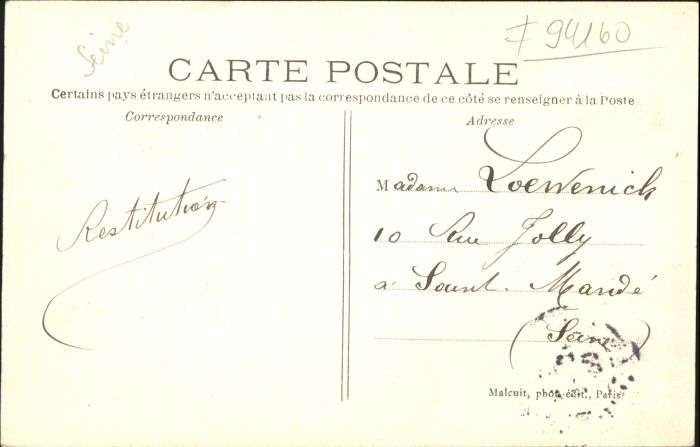 Seine
# 94160
CARTE POSTALE
Certains pays étrangers n'acceptant pas la correspondance de ce côté se renseigner à la Poste
Correspondance
Restitution
Adresse
Madame Loewenich
10 Rue Jolly
à Saint-Mandé
(Seine)
Malcuit, phot-édit., Paris